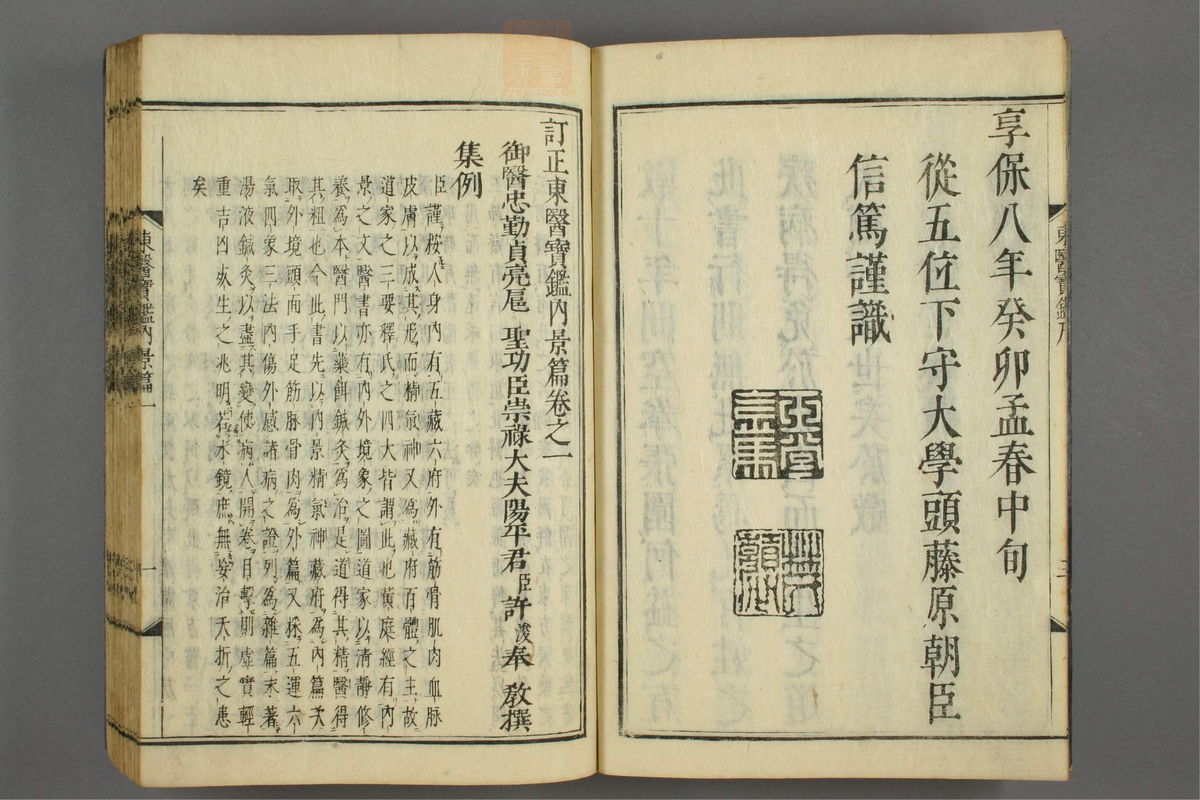 享保八年癸卯孟春中旬
從五位下守大學頭藤原朝臣
信篤謹識
東醫寶鑑序
三
訂正東醫寶鑑內景篇卷之一
御醫忠勤貞亮扈 聖功臣崇祿大夫陽平君臣許浚奉 敎撰
集例
臣謹按人身內有五藏六府外有筋骨肌肉血脉
皮膚以成其形而精氣神又爲藏府百體之主故
道家之三要釋氏之四大皆謂此也黃庭經有內
景之文醫書亦有內外境象之圖道家以淸靜修
養爲本醫門以藥餌鍼灸爲治是道得其精醫得
其粗也今此書先以內景精氣神藏府爲內篇次
取外境頭面手足筋脉骨肉爲外篇又採五運六
氣四象三法內傷外感諸病之證列爲雜篇末著
湯液鍼灸以盡其變使病人開卷目擊則虛實輕
重吉凶死生之兆明若水鏡庶無妄治夭折之患
矣
東醫寶鑑內景篇一
一